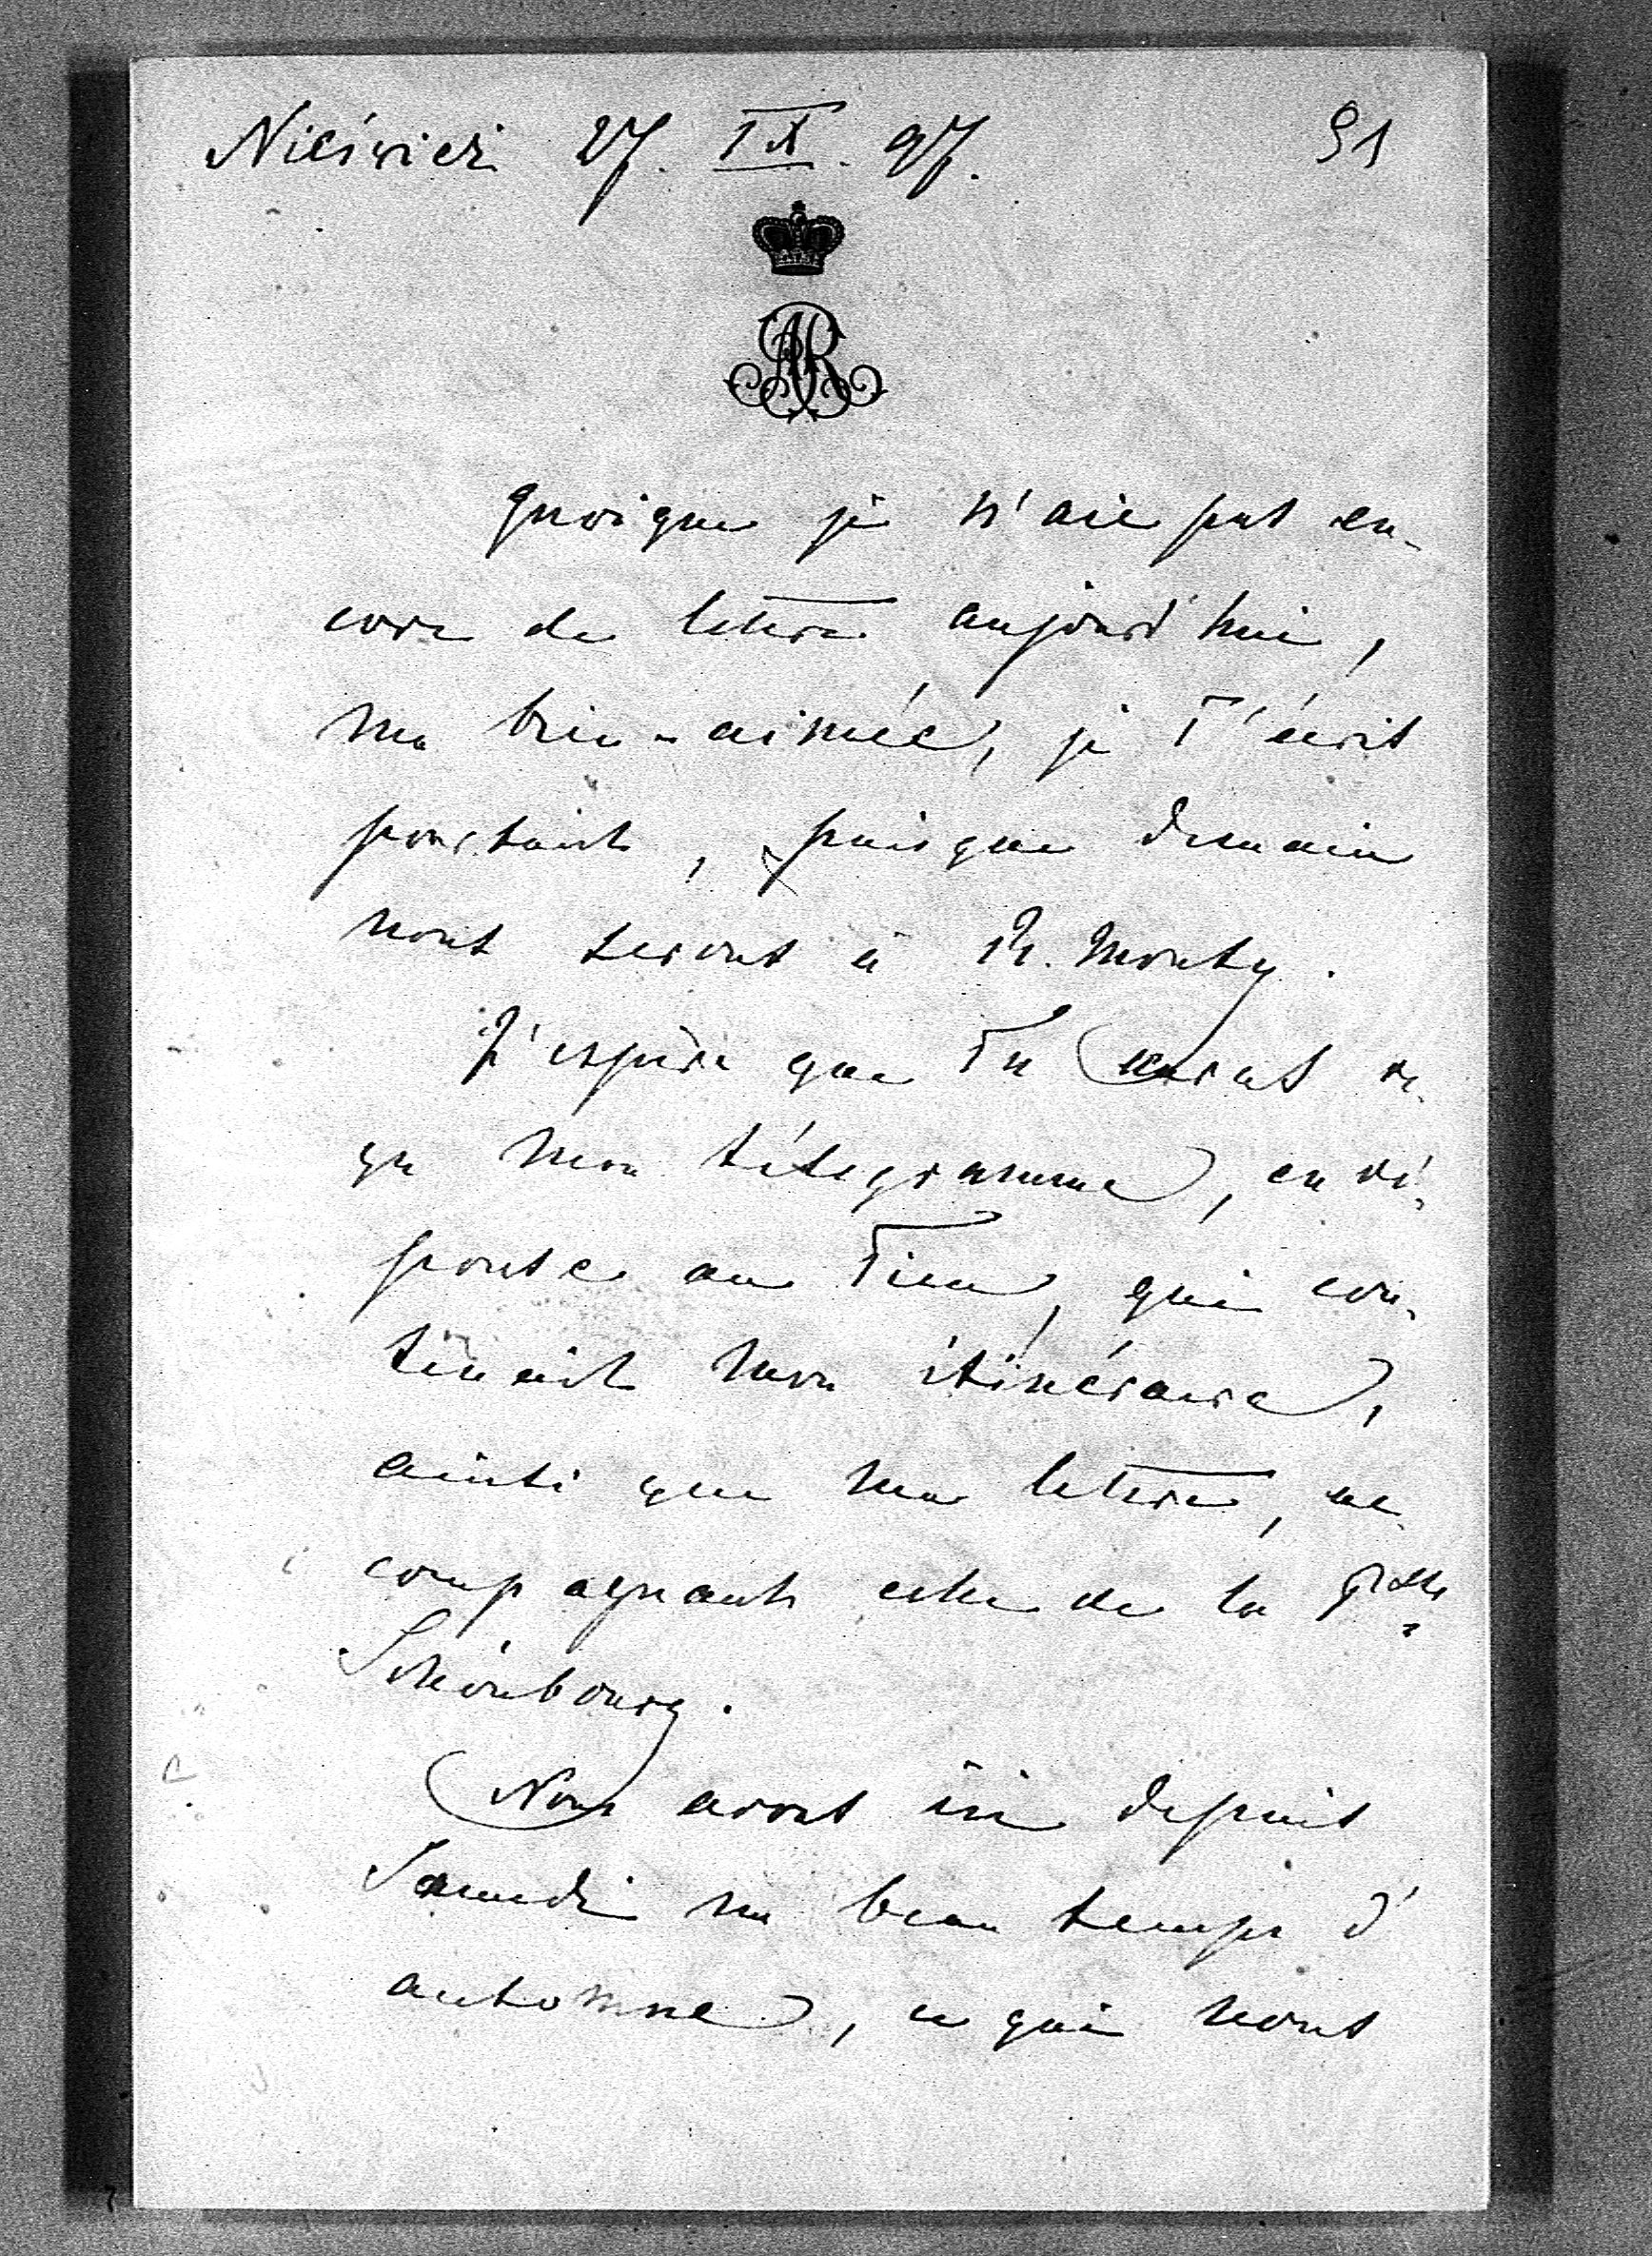 Nieśwież 27. IX. 97. 91
AR
Quoique je n'aie pas en-
core de lettre aujourd'hui,
ma bien-aimée, je T'écris
pourtant, puisque demain
nous serons à R. Monty.
J'espère que Tu auras re-
çu mon télégramme, en ré-
ponse au Tien, qui con-
tenait mon itinéraire,
ainsi que ma lettre, ac-
compagnant celle de la
Schönbourg.
Nous avons ici depuis
Samedi un beau temps d'
automne, ce qui nous